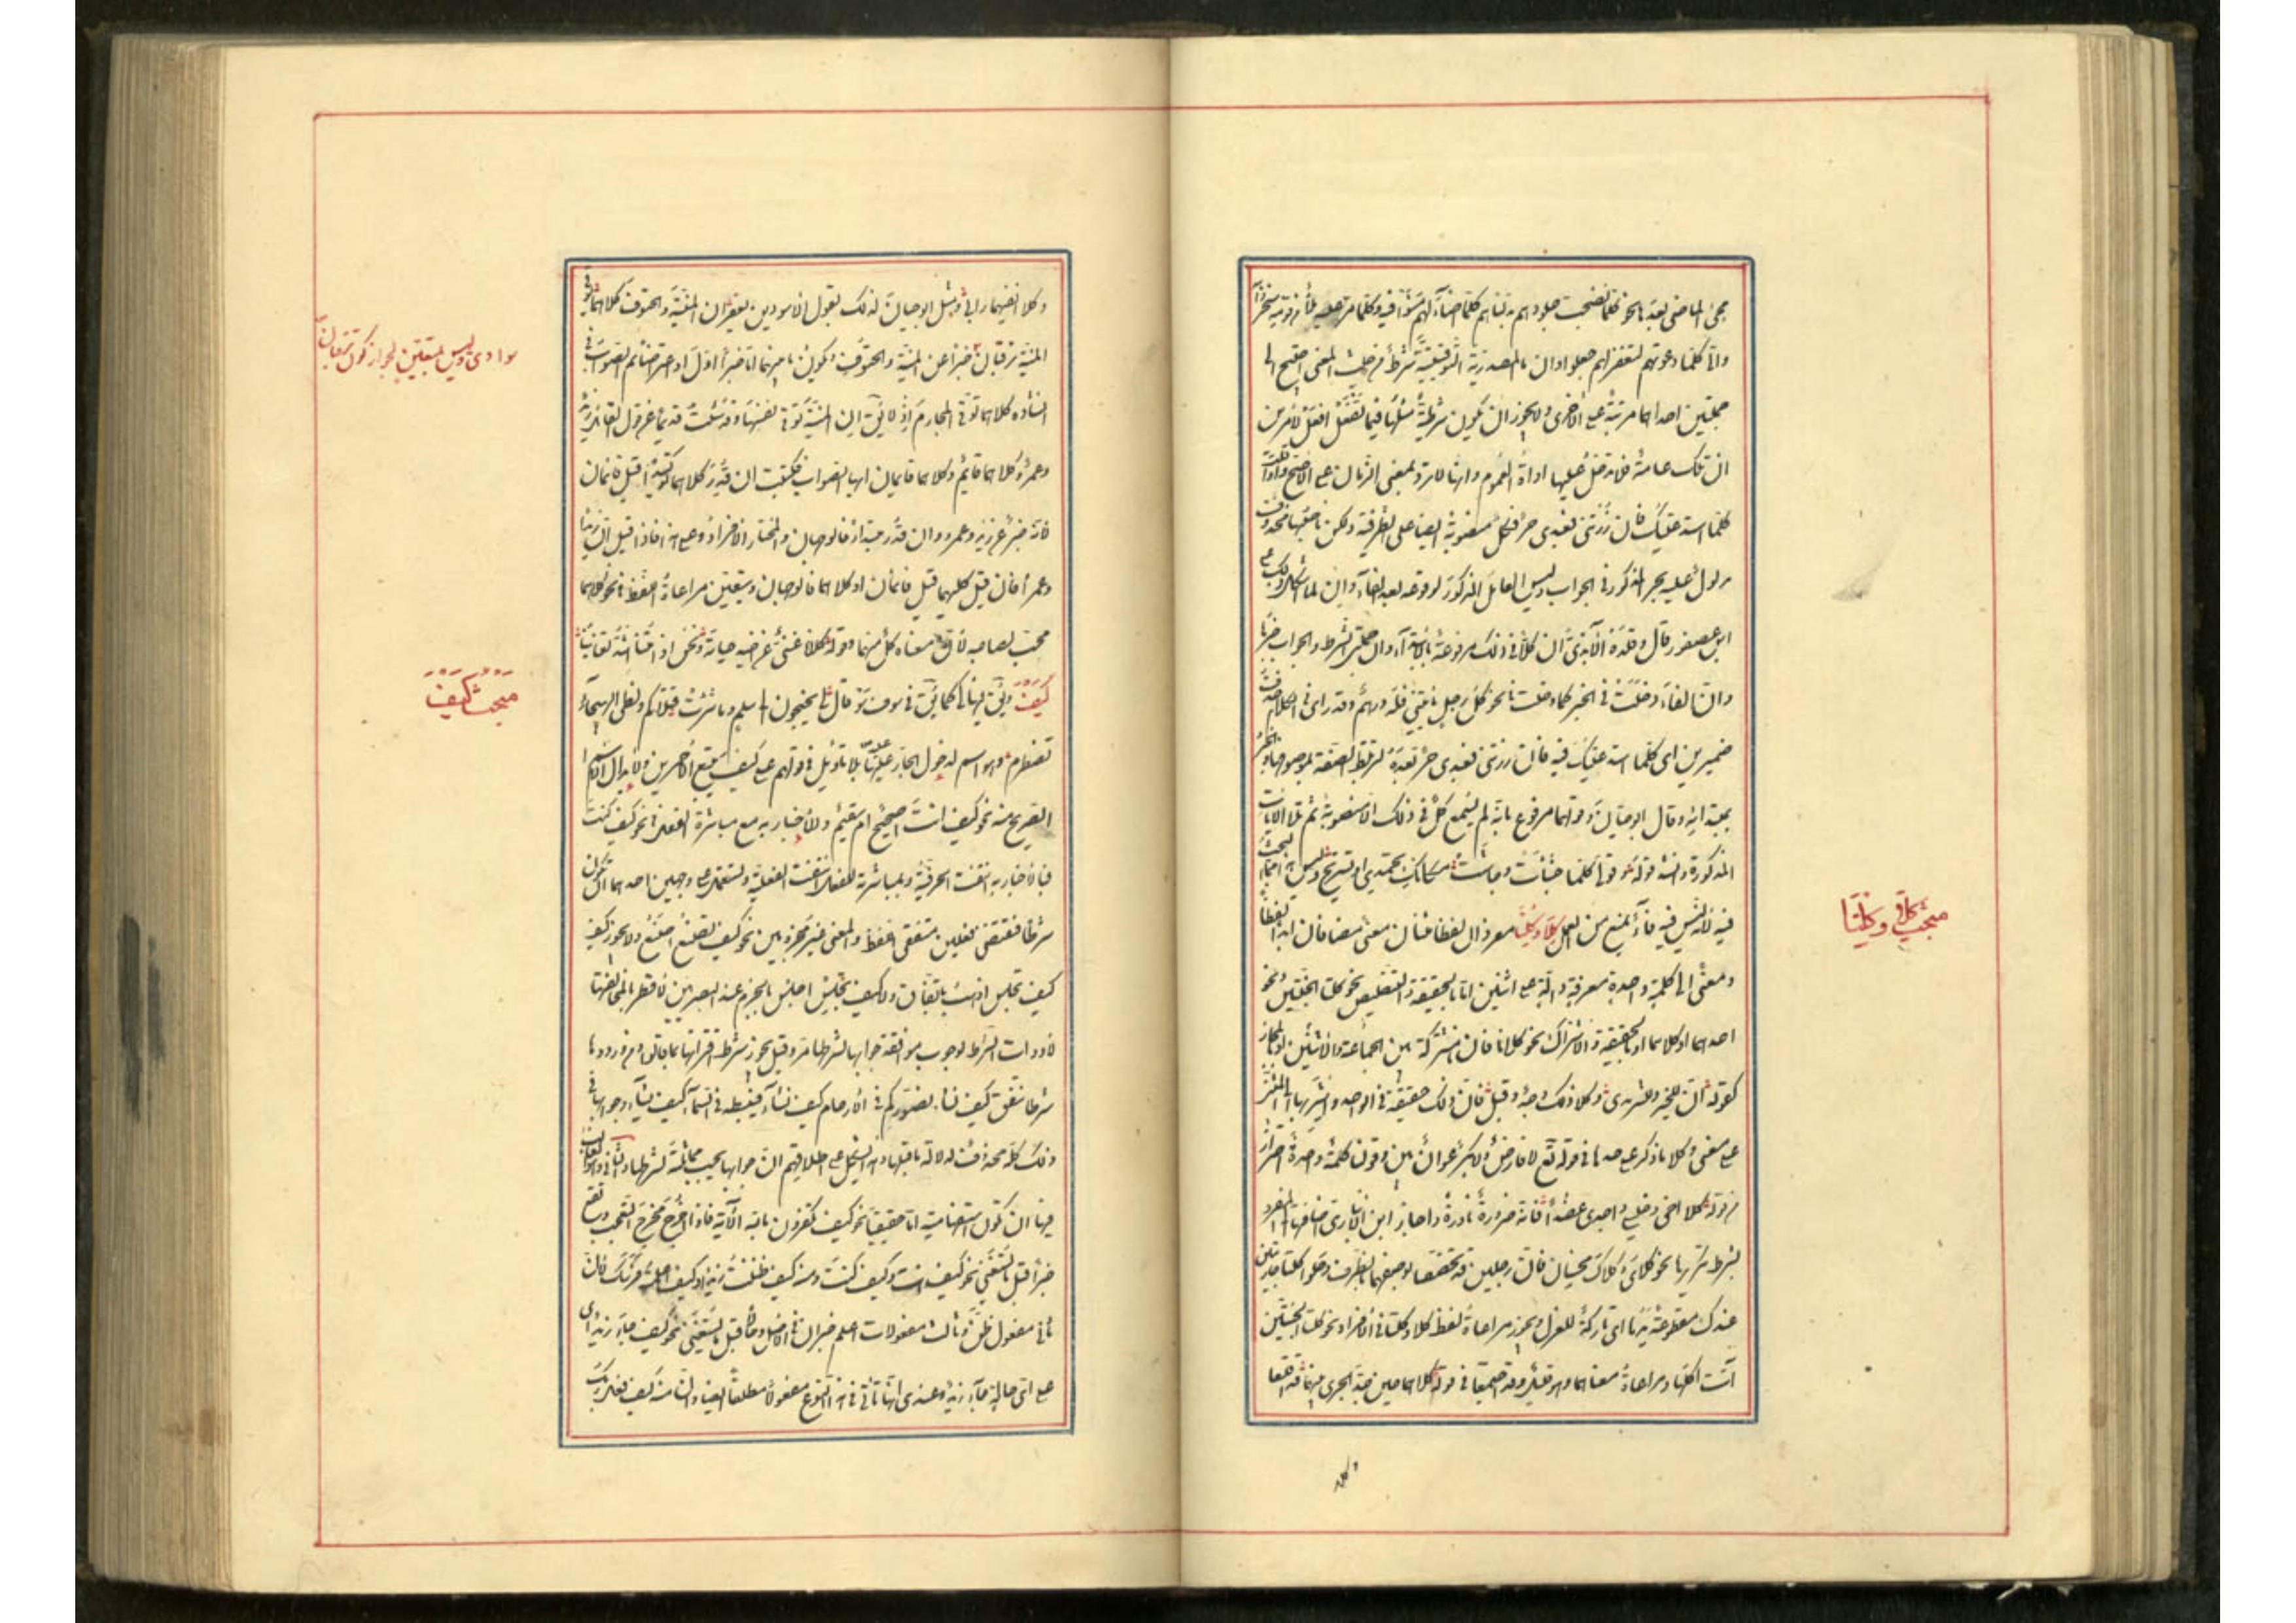 مجئ الماضى بعد نحو كلما نضجت جلودهم بدلناهم كلما اضاء لهم مشوا فيه وكلما مر عليه ملأ من قومه سخروا
وانى كلما دعوتهم لتغفر لهم جعلوا وان ما المصدرية التوقيتية شرط من حيث المعنى احتيج الى
جملتين احداهما مرتبة على الاخرى ولا يجوز ان تكون شرطية مثلها فى ما تفعل افعل لامرين
ان تلك عامة فلا تدخل عليها اداة العموم وانها لا ترد بمعنى الزمان على الاصح واذا قلت
كلما استدعيتك فان زرتنى فعبدى حر فكل منصوبة ايضا على الظرفية ولكن ناصبها محذوف
مدلول عليه بحر المذكور فى الجواب وليس العامل المذكور لوقوعه بعد الفاء وان ولما اشكل ذلك على
ابن عصفور قال وقلده الأبدى ان كلا فى ذلك مرفوعة بالابتداء وان جملتى الشرط والجواب خبرها
وان الفاء دخلت فى الخبر كما دخلت فى نحو كل رجل يأتينى فله درهم وقدرا فى الكلام حذف
ضميرين اى كلما استدعيتك فيه فان زرتنى فعبدى حر بعده لترتبط الصفة بموصوفها والخبر
بمبتدائه وقال ابو حيان وقولهما مرفوع بانه لم يسمع كل فى ذلك الا منصوبة ثم تلا الآيات
المذكورة وانشد قوله وقولى كلما جشأت وجاشت مكانك تحمدى او تستريحى وليس هذا مما البحث
فيه لانه ليس فيه فاء يمنع من العمل كلا وكلتا مفردان لفظا مثنيان معنى مضافان ابدا لفظا
ومعنى الى كلمة واحدة معرفة دالة على اثنين اما بالحقيقة والتنصيص نحو كلتا الجنتين ونحو
احدهما او كلاهما او بالحقيقة والاشتراك نحو كلانا فان نا مشتركة بين الجماعة والاثنين او بالمجاز
كقوله ان للخير وللشر مدى وكلا ذلك وجه وقبل فان ذلك حقيقة فى الواحد واشير بها الى المثنى
على معنى وكلا ما ذكر على حدها فى قوله تع لا فارض ولا بكر عوان بين وقولنا كلمة واحدة احتراز
من قوله كلا اخى وخليلى واجدى عضدا فانه ضرورة نادرة واجاز ابن الانبارى اضافتها الى المفرد
بشرط تكريرها نحو كلاى وكلاك محسنان فان رجلين قد تخصصا بوصفهما بالظرف وحكوا كلتا جاريتين
عندك مقطوعة يدها اى تاركة للغزل ويجوز مراعاة لفظ كلا وكلتا فى الافراد نحو كلتا الجنتين
آتت اكلها ومراعاة معناهما وهو قليل وقد اجتمعا فى قوله كلاهما حين جد الجرى بينهما قد اقلعا
وكلا
مبحث كلا وكلتا
وكلا انفيهما رابى ومثل ابو حيان لذلك بقول الاسود بن يعفر ان المنية والحتوف كلاهما يوفى
المنية يرقبان خبرا عن المنية والحتوف ويكون ما بينهما اما خبرا اول او اعتراضا ثم الصواب فى
انشاده كلاهما يوفى المخارم اذ لا يق ان المنية توفى نفسها وقد سئلت قديما عن قول القائل زيد
وعمرو كلاهما قائم وكلاهما قائمان ايهما الصواب فكتبت ان قدر كلاهما توكيدا قيل قائمان
لانه خبر عن زيد وعمرو وان قدر مبتدأ فالوجهان والمختار الافراد وعلى هذا فاذا قيل ان زيدا
وعمرا فان قيل كليهما قيل قائمان او كلاهما فالوجهان ويتعين مراعاة اللفظ فى نحو كلاهما
محب لصاحبه لان معناه كل منهما وقوله كلانا غنى عن اخيه حياته ونحن اذا متنا اشد تغانيا
كيف ويق فيها كى كما يق فى سوف سو قال كى تجنحون الى سلم وما ثئرت قتلاكم ولظى الهيجاء
تضطرم وهو اسم لدخول الجار عليه بلا تأويل فى قولهم على كيف تبيع الاحمرين ولابدال الاسم
الصريح منه نحو كيف انت أصحيح ام سقيم وللاخبار به مع مباشرة الفعل فى نحو كيف كنت
فبالاخبار به انتفت الحرفية وبمباشرته للفعل انتفت الفعلية وتستعمل على وجهين احدهما ان تكون
شرطا فتقتضى فعلين متفقى اللفظ والمعنى غير مجزومين نحو كيف تصنع اصنع ولا يجوز كيف
كيف تجلس اذهب باتفاق ولا كيف تجلس اجلس بالجزم عند البصريين الا قطربا لمخالفتها
لادوات الشرط لوجوب موافقة جوابها لشرطها كما مر وقيل يجوز بشرط اقترانها بما قالوا ومن ورودها
شرطا ينفق كيف يشاء يصوركم فى الأرحام كيف يشاء فيبسطه فى السماء كيف يشاء وجوابها فى
ذلك كله محذوف لدلالة ما قبلها وهذا يشكل على اطلاقهم ان جوابها يجب مماثلته لشرطها والثانى وهو الغالب
فيها ان تكون استفهامية اما حقيقيا نحو كيف تكفرون بالله الآية فانه اخرج مخرج التعجب ويقع
خبرا قبل ما لا يستغنى نحو كيف انت وكيف كنت ومنه كيف ظننت زيدا وكيف اعلمته فرسك لان
ثانى مفعولى ظن وثالث مفعولات اعلم خبران فى الاصل وحالا قبل ما يستغنى نحو كيف جاء زيد اى
على اى حالة جاء زيد وعندى انها تأتى فى هذا النوع مفعولا مطلقا ايضا وان منه كيف فعل ربك
سوادى وليس بمتعين لجواز كون يرقبان
مبحث كيف